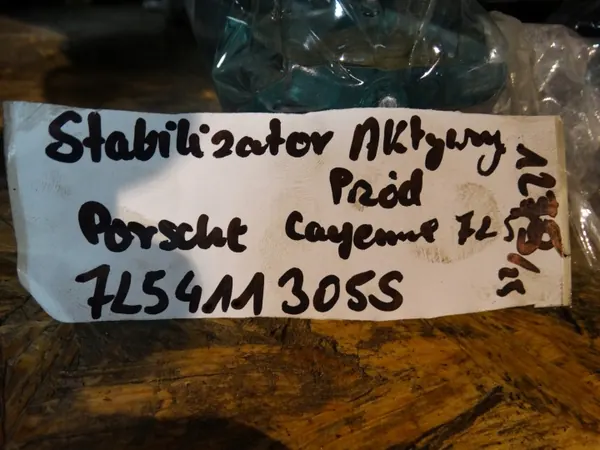 Stabilizator Aktywny
Przód
Porsche Cayenne 7L5
7L5411305S